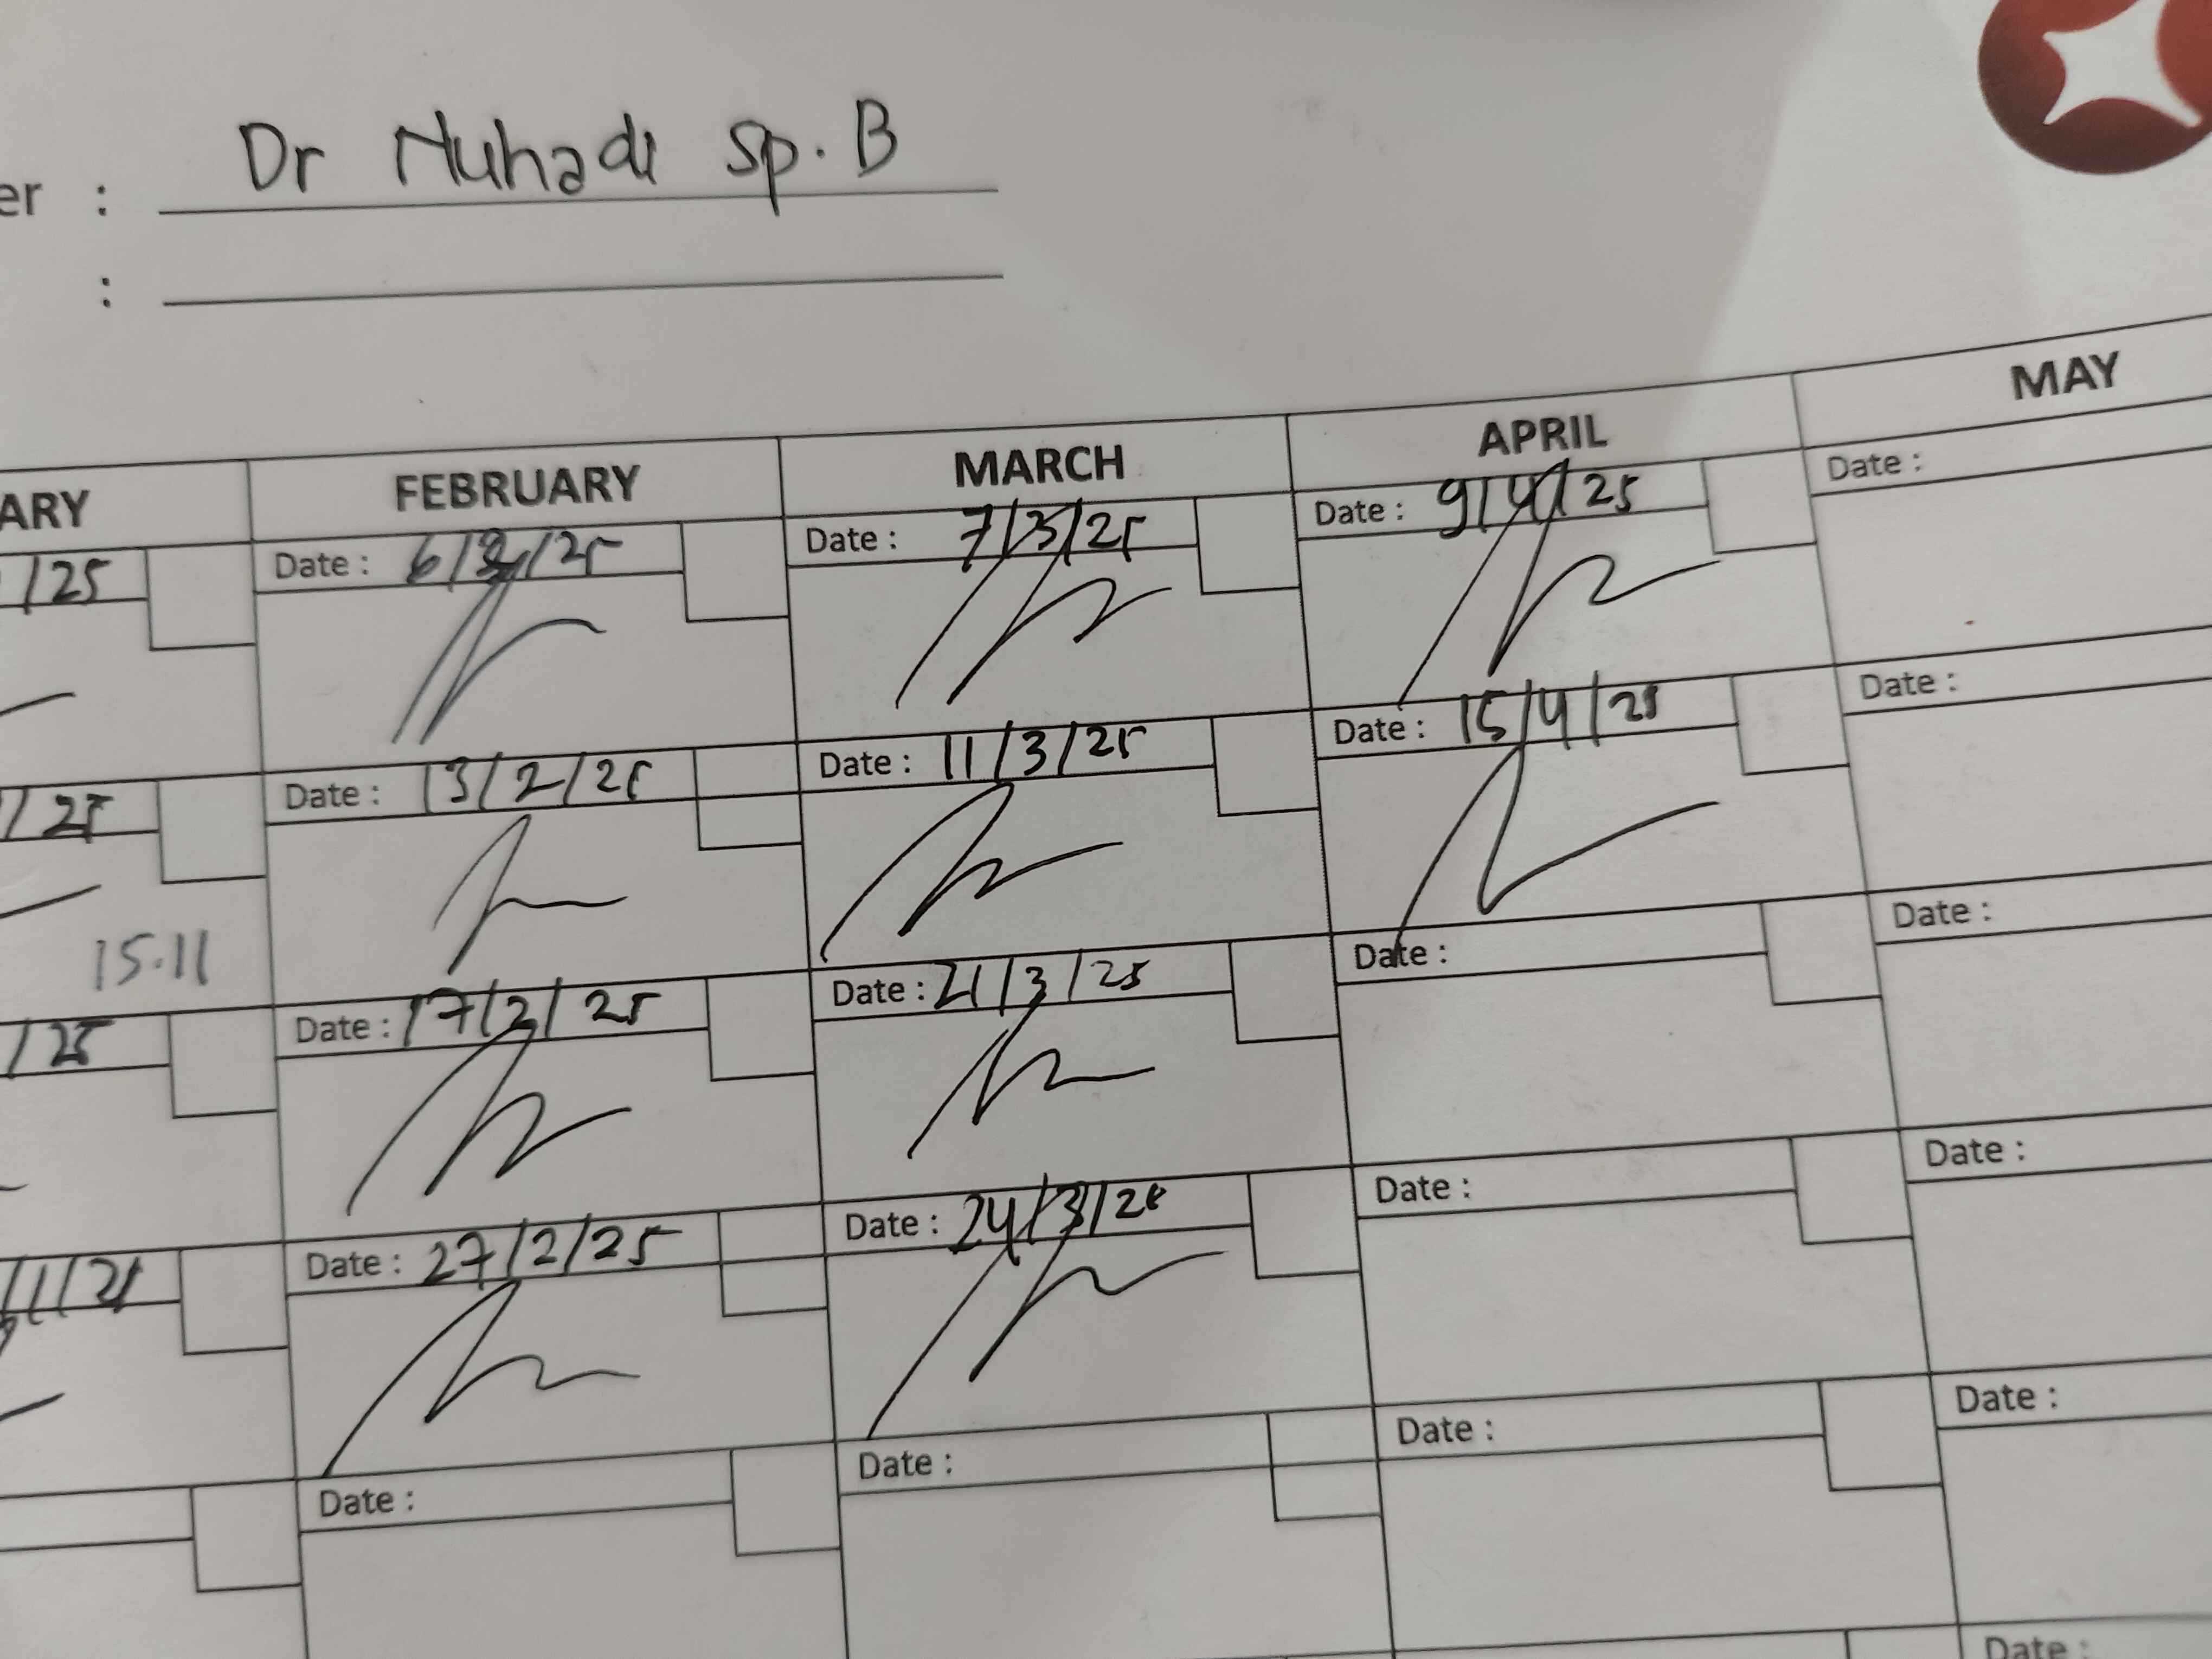 er : Dr Nuhadi Sp. B
:
ARY FEBRUARY MARCH APRIL MAY
/25 Date : 6/2/25 Date : 7/3/25 Date : 9/4/25 Date :
/25 Date : 13/2/25 Date : 11/3/25 Date : 15/4/25 Date :
15.11
/25 Date : 17/2/25 Date : 21/3/25 Date : Date :
/1/25 Date : 27/2/25 Date : 24/3/25 Date : Date :
Date : Date : Date : Date :
Date :